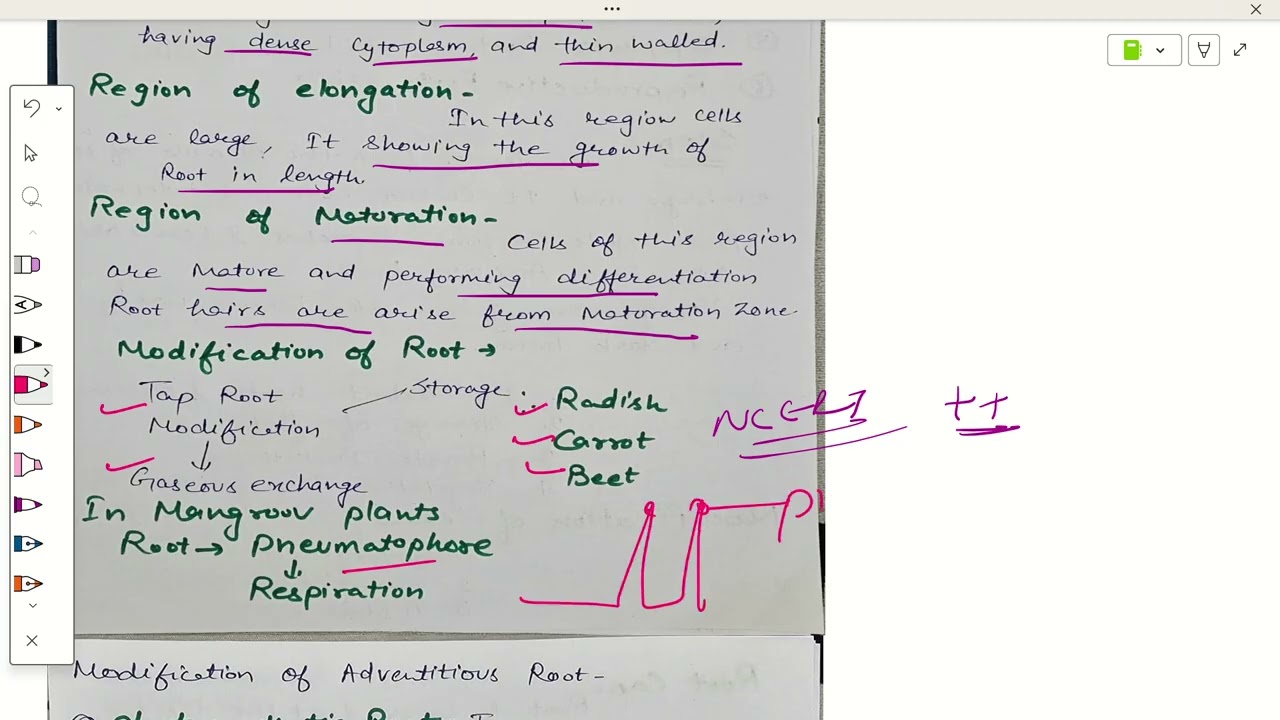 having dense cytoplasm, and thin walled.
Region of elongation-
In this region cells
are large, It showing the growth of
Root in length.
Region of Maturation-
Cells of this region
are Mature and performing differentiation
Root hairs are arise from Maturation Zone.
Modification of Root →
Tap Root
Modification
Storage
Radish
Carrot
Beet
NCERT ++
Gaseous exchange
In Mangroov plants
Root → Pneumatophore
Respiration
Modification of Adventitious Root-